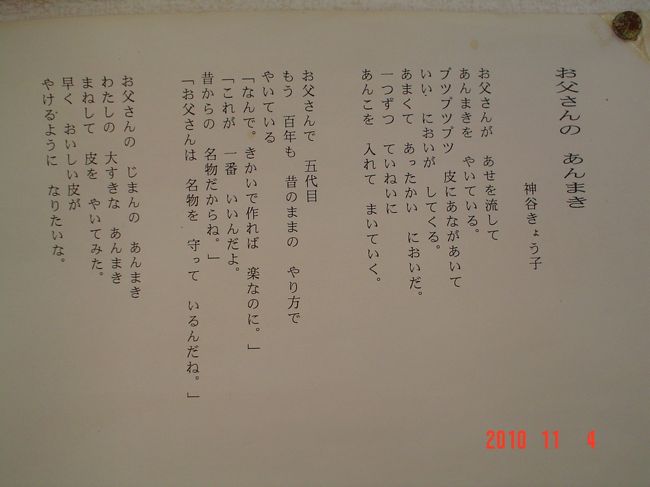 お父さんの　あんまき
神谷きょう子
お父さんが　あせを流して
あんまきを　やいている。
プツプツプツ　皮にあながあいて
いい、においが　してくる。
あまくて　あったかい　においだ。
一つずつ　ていねいに
あんこを　入れて　まいていく。
お父さんで　五代目
もう　百年も　昔のままの　やり方で
やいている
「なんで。きかいで作れば　楽なのに。」
「これが　一番　いいんだよ。
昔からの　名物だからね。」
「お父さんは　名物を　守って　いるんだね。」
お父さんの　じまんの　あんまき
わたしの　大すきな　あんまき
まねして　皮を　やいてみた。
早く　おいしい皮が
やけるように　なりたいな。
2010 11 4